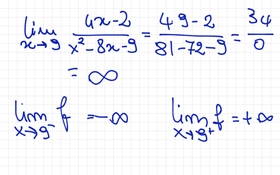 lim x→9 (4x-2)/(x²-8x-9) = (4·9-2)/(81-72-9) = 34/0
= ∞
lim x→9⁻ f = -∞ lim x→9⁺ f = +∞